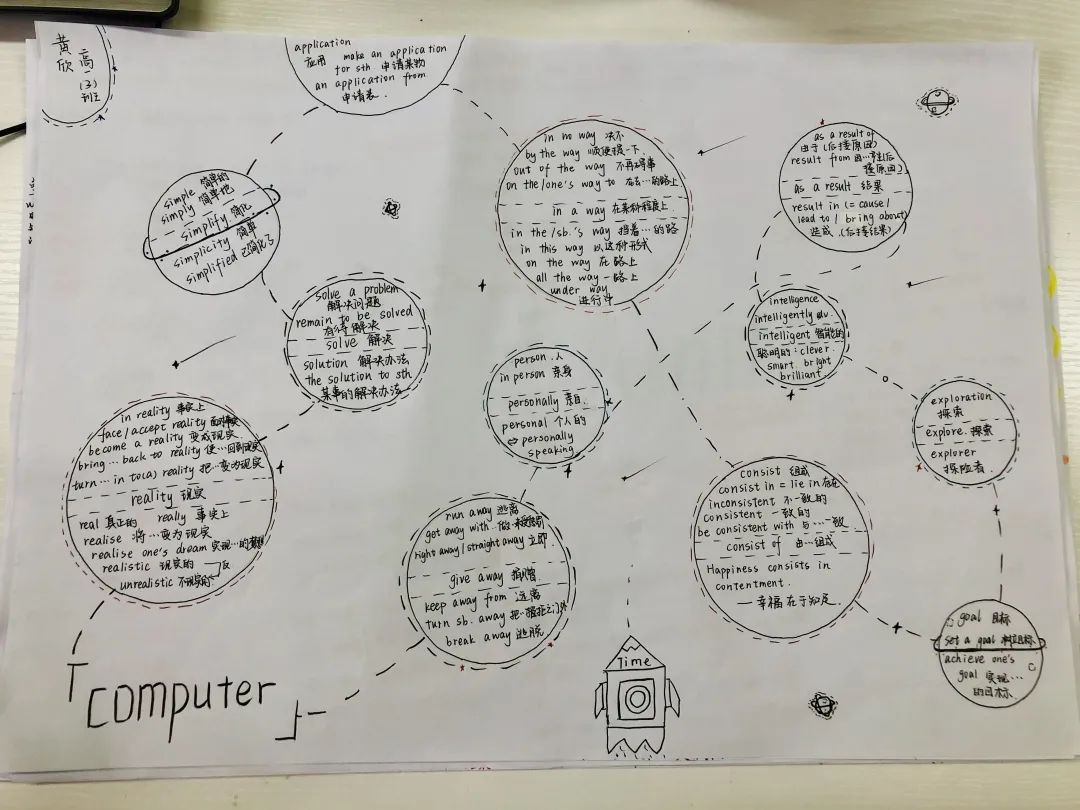 黄欣
高一(3)班
application
应用 make an application
for sth. 申请某物
an application from
申请表.
simple 简单的
simply 简单地
simplify 简化
simplicity 简单
simplified 已简化了
in no way 决不
by the way 顺便提一下.
out of the way 不再碍事
on the/one's way to 在去…的路上
in a way 在某种程度上
in the/sb.'s way 挡着…的路
in this way 以这种形式
on the way 在路上
all the way 一路上
under way
进行中
as a result of
由于(后接原因)
result from 因…产生(后
接原因)
as a result 结果
result in (= cause/
lead to / bring about)
造成.(后接结果)
solve a problem
解决问题
remain to be solved
有待解决
solve 解决
solution 解决办法
the solution to sth
某事的解决办法
intelligence
intelligently adv.
intelligent 智能的
聪明的: clever.
smart bright
brilliant
person.人
in person 亲身
personally 亲自.
personal 个人的
⇔ personally
speaking
exploration
探索
explore.探索
explorer
探险者.
in reality 事实上
face/accept reality 面对事实
become a reality 变成现实
bring … back to reality 使…回到现实
turn … in to(a) reality 把…变为现实
reality 现实
real 真正的 really 事实上
realise 将…变为现实
realise one's dream 实现…的梦想
realistic 现实的
反
unrealistic 不现实的
run away 逃离
get away with 做
right away/straight away 立即
give away 捐赠
keep away from 远离
turn sb. away 把…拒之门外
break away 逃脱
consist 组成
consist in = lie in 存在
inconsistent 不一致的
consistent 一致的
be consistent with 与…一致
consist of 由…组成
Happiness consists in
contentment.
— 幸福在于知足.
goal 目标
set a goal 制定目标
achieve one's
goal 实现…
的目标
「computer」
Time